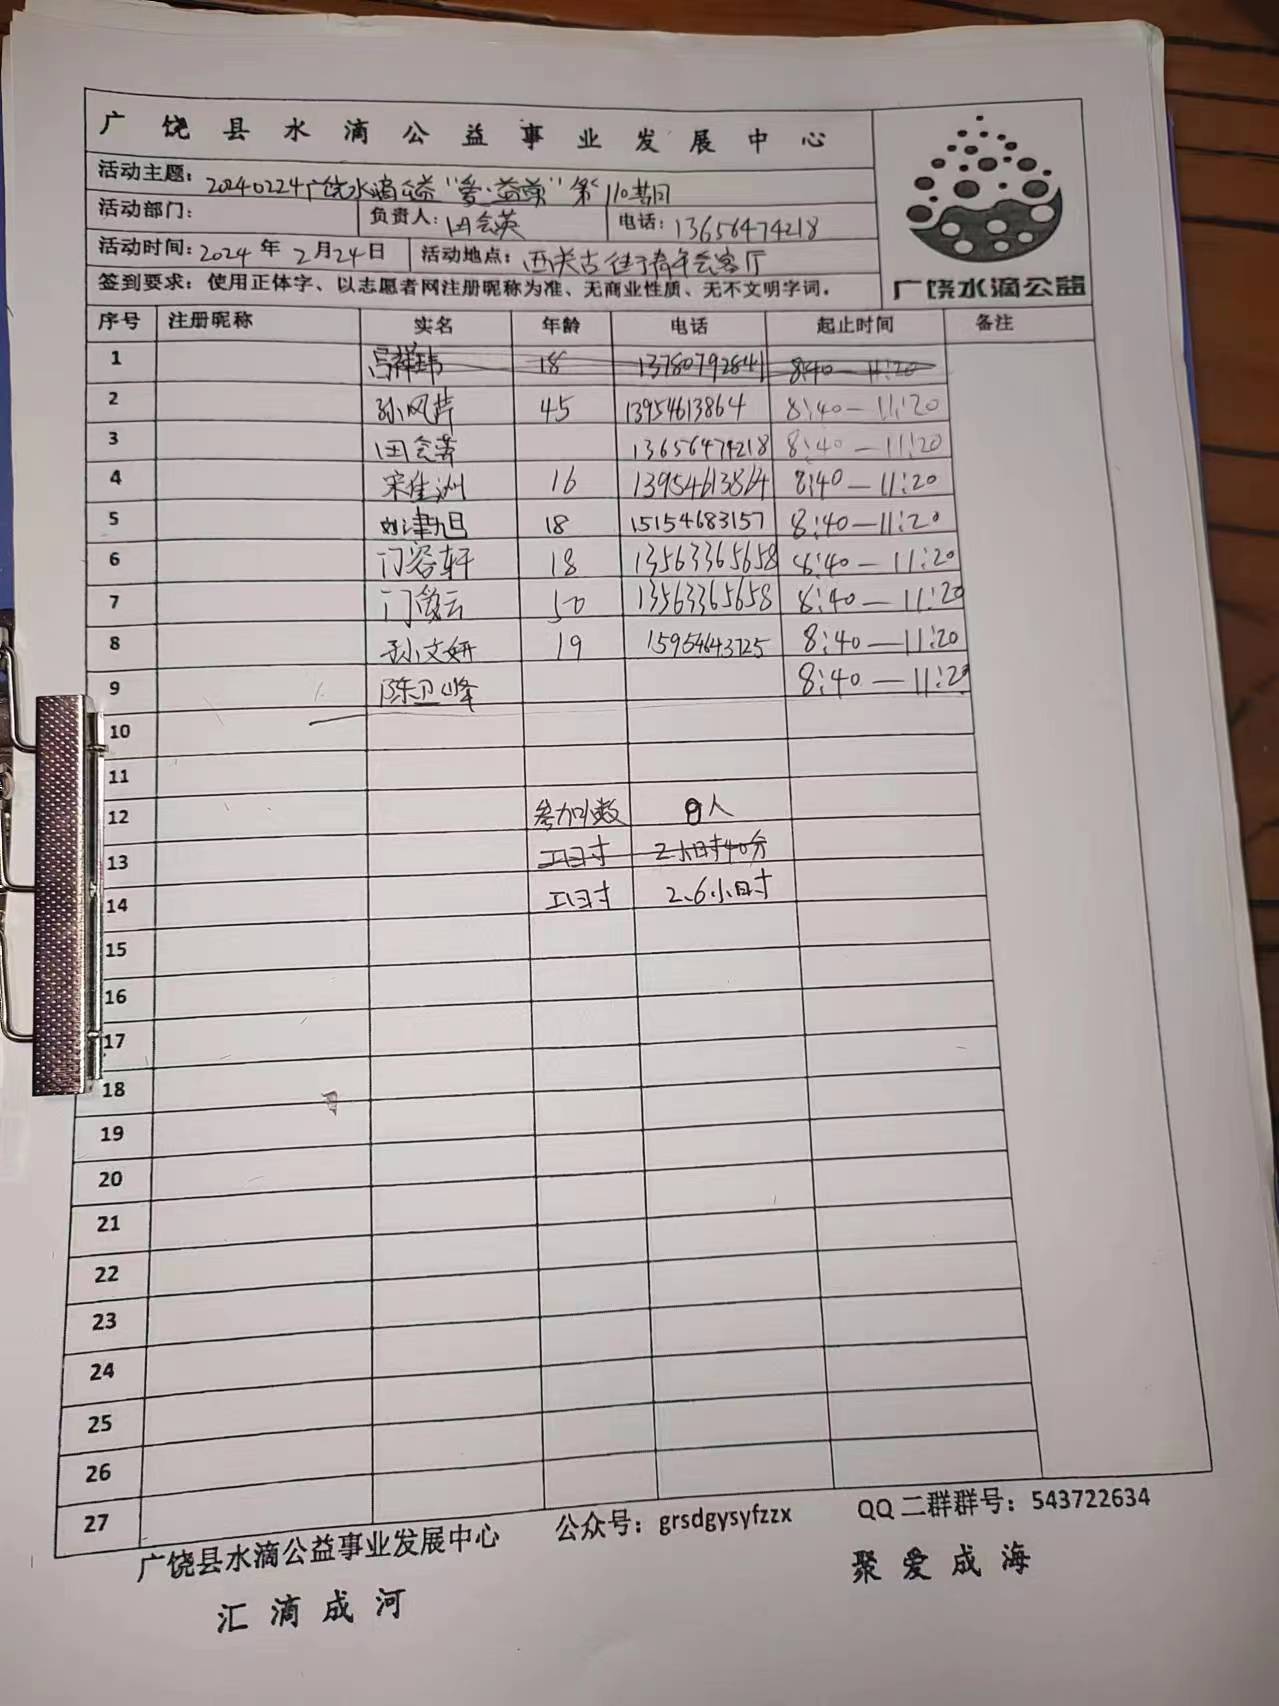 广饶县水滴公益事业发展中心
活动主题：20240224广饶水滴公益“爱·益菜”第110期
广饶水滴公益
活动部门： 负责人：田会英 电话：13656474218
活动时间：2024年2月24日 活动地点：西关古住于青年会客厅
签到要求：使用正体字、以志愿者网注册昵称为准、无商业性质、无不文明字词。
序号 注册昵称 实名 年龄 电话 起止时间 备注
1 祥玮 18 13780792841 8:40—11:20
2 孙凤芹 45 13954613864 8:40—11:20
3 田会英 13656474218 8:40—11:20
4 宋佳洲 16 13954613864 8:40—11:20
5 刘津旭 18 15154683157 8:40—11:20
6 门容轩 18 13563365658 8:40—11:20
7 门俊云 50 13563365658 8:40—11:20
8 孙文妍 19 15954643725 8:40—11:20
9 陈卫峰 8:40—11:20
10
11
12 参加人数 8人
13 工时 2小时40分
14 工时 2.6小时
15
16
17
18
19
20
21
22
23
24
25
26
27
广饶县水滴公益事业发展中心 公众号：grsdgysyfzzx QQ二群群号：543722634
汇滴成河 聚爱成海